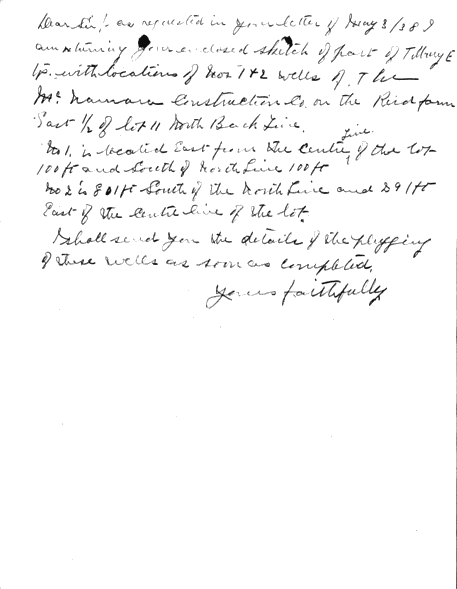 Dear Sir,- as requested in your letter of May 3/38 I
am returning your enclosed sketch of part of Tilbury E
Tp. with locations of Nos 1 & 2 wells of The
Mc. Namara Construction Co. on the Reid farm
East 1/2 of lot 11 North Back Line.
No 1. is located East from the Centre line of the lot
100 ft and South of North Line 100 ft
No 2 is 801 ft South of the North Line and 291 ft
East of the Centre line of the lot.
I shall send you the details of the plugging
of these wells as soon as completed.
Yours faithfully